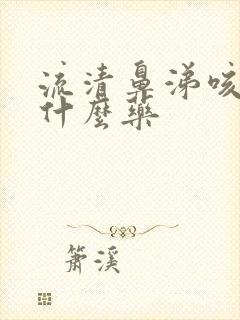 流清鼻涕咳
什麼藥
簫溪